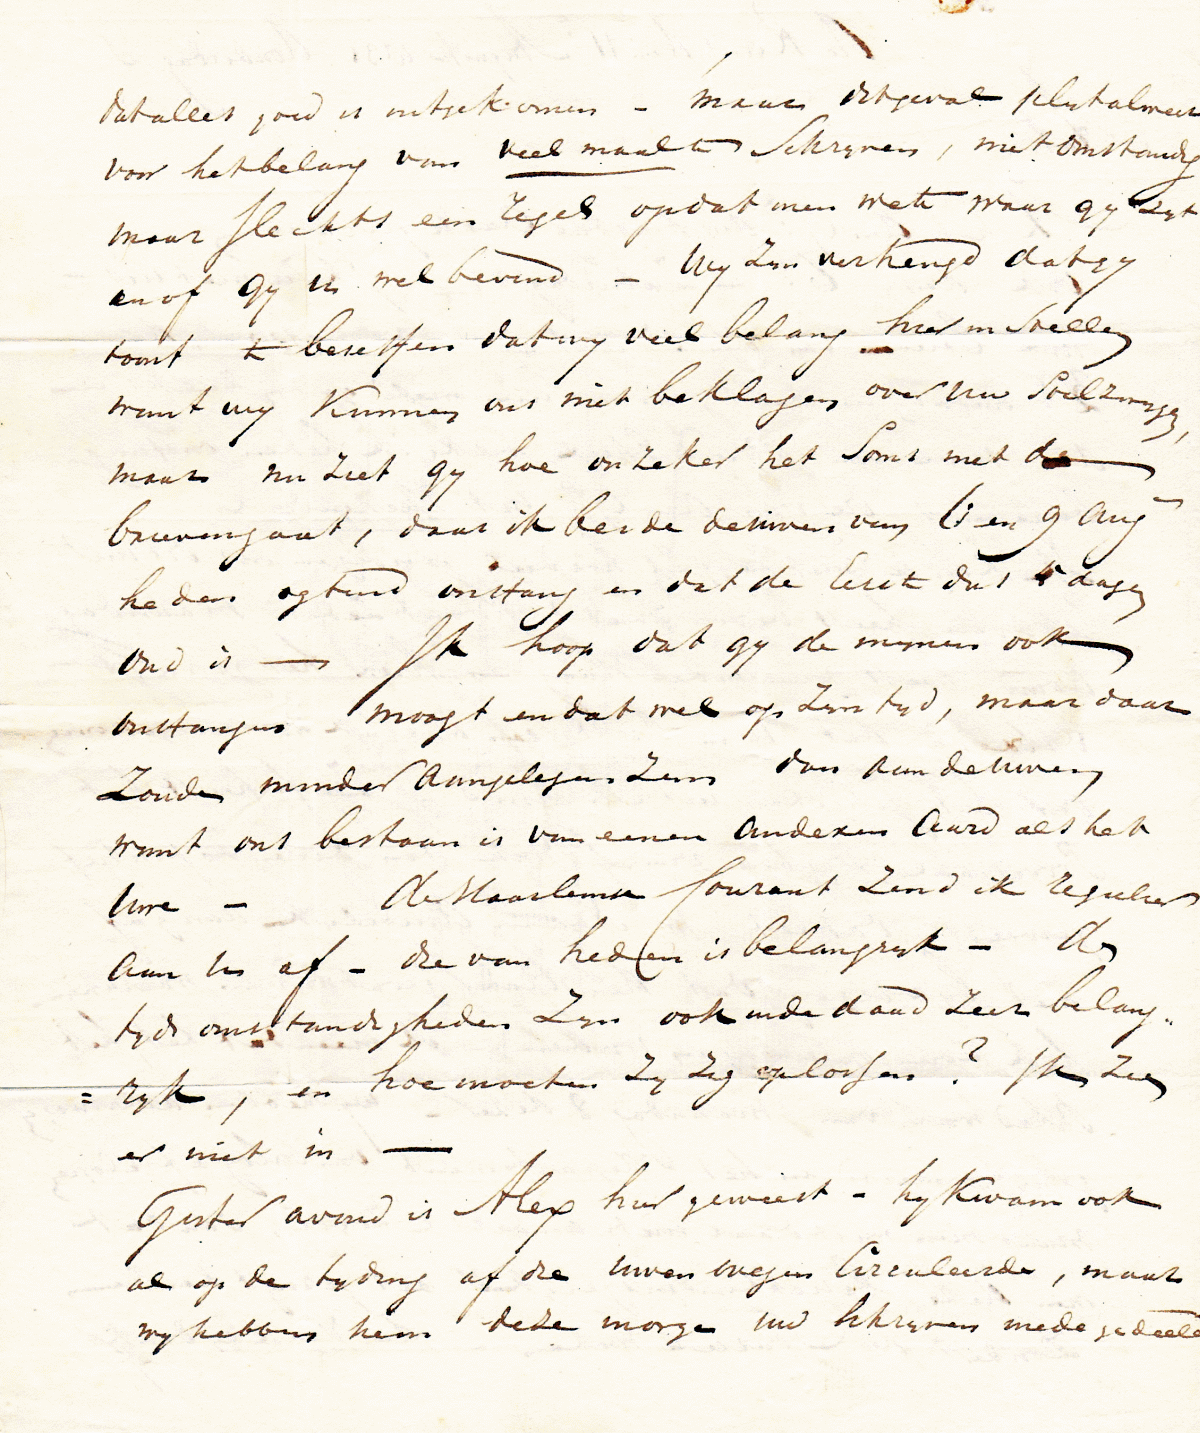 dat alles goed is uitgekomen – maar dit geval pleit alweer
voor het belang van veel maalen Schryven, niet omstandig
maar slechts een regel opdat men wete waar gy zyt
en of gy u wel bevind – Wy zyn verheugd dat gy
toont te beseffen dat wy veel belang hier in Stellen
want wy Kunnen ons niet beklagen over Uw Stilzwygen,
maar nu ziet gy hoe onzeker het Soms met de
brieven gaat, daar ik beide de uwen van 6 en 9 Aug
heden ogtend ontfang en dat de Eerste dus 5 dagen
oud is — Ik hoop dat gy de mynen ook
ontfangen moogt en dat wel op zyn tyd, maar daar
Zoude minder aangelegen zyn dan aan de uwen,
want ons bestaan is van eenen anderen Aard als het
Uwe – de Haarlemse Courant Zend ik regulier
aan U af – die van heden is belangryk – de
tyds omstandigheden Zyn ook inderdaad zeer belang-
= ryk, en hoe moeten zy zig oplossen? Ik Zie
er niet in —
Gister avond is Alex hier geweest – hy Kwam ook
al op de tyding af die uwen wegen Circuleerde, maar
wy hebben hem deze morge uw Schryven mede gedeeld